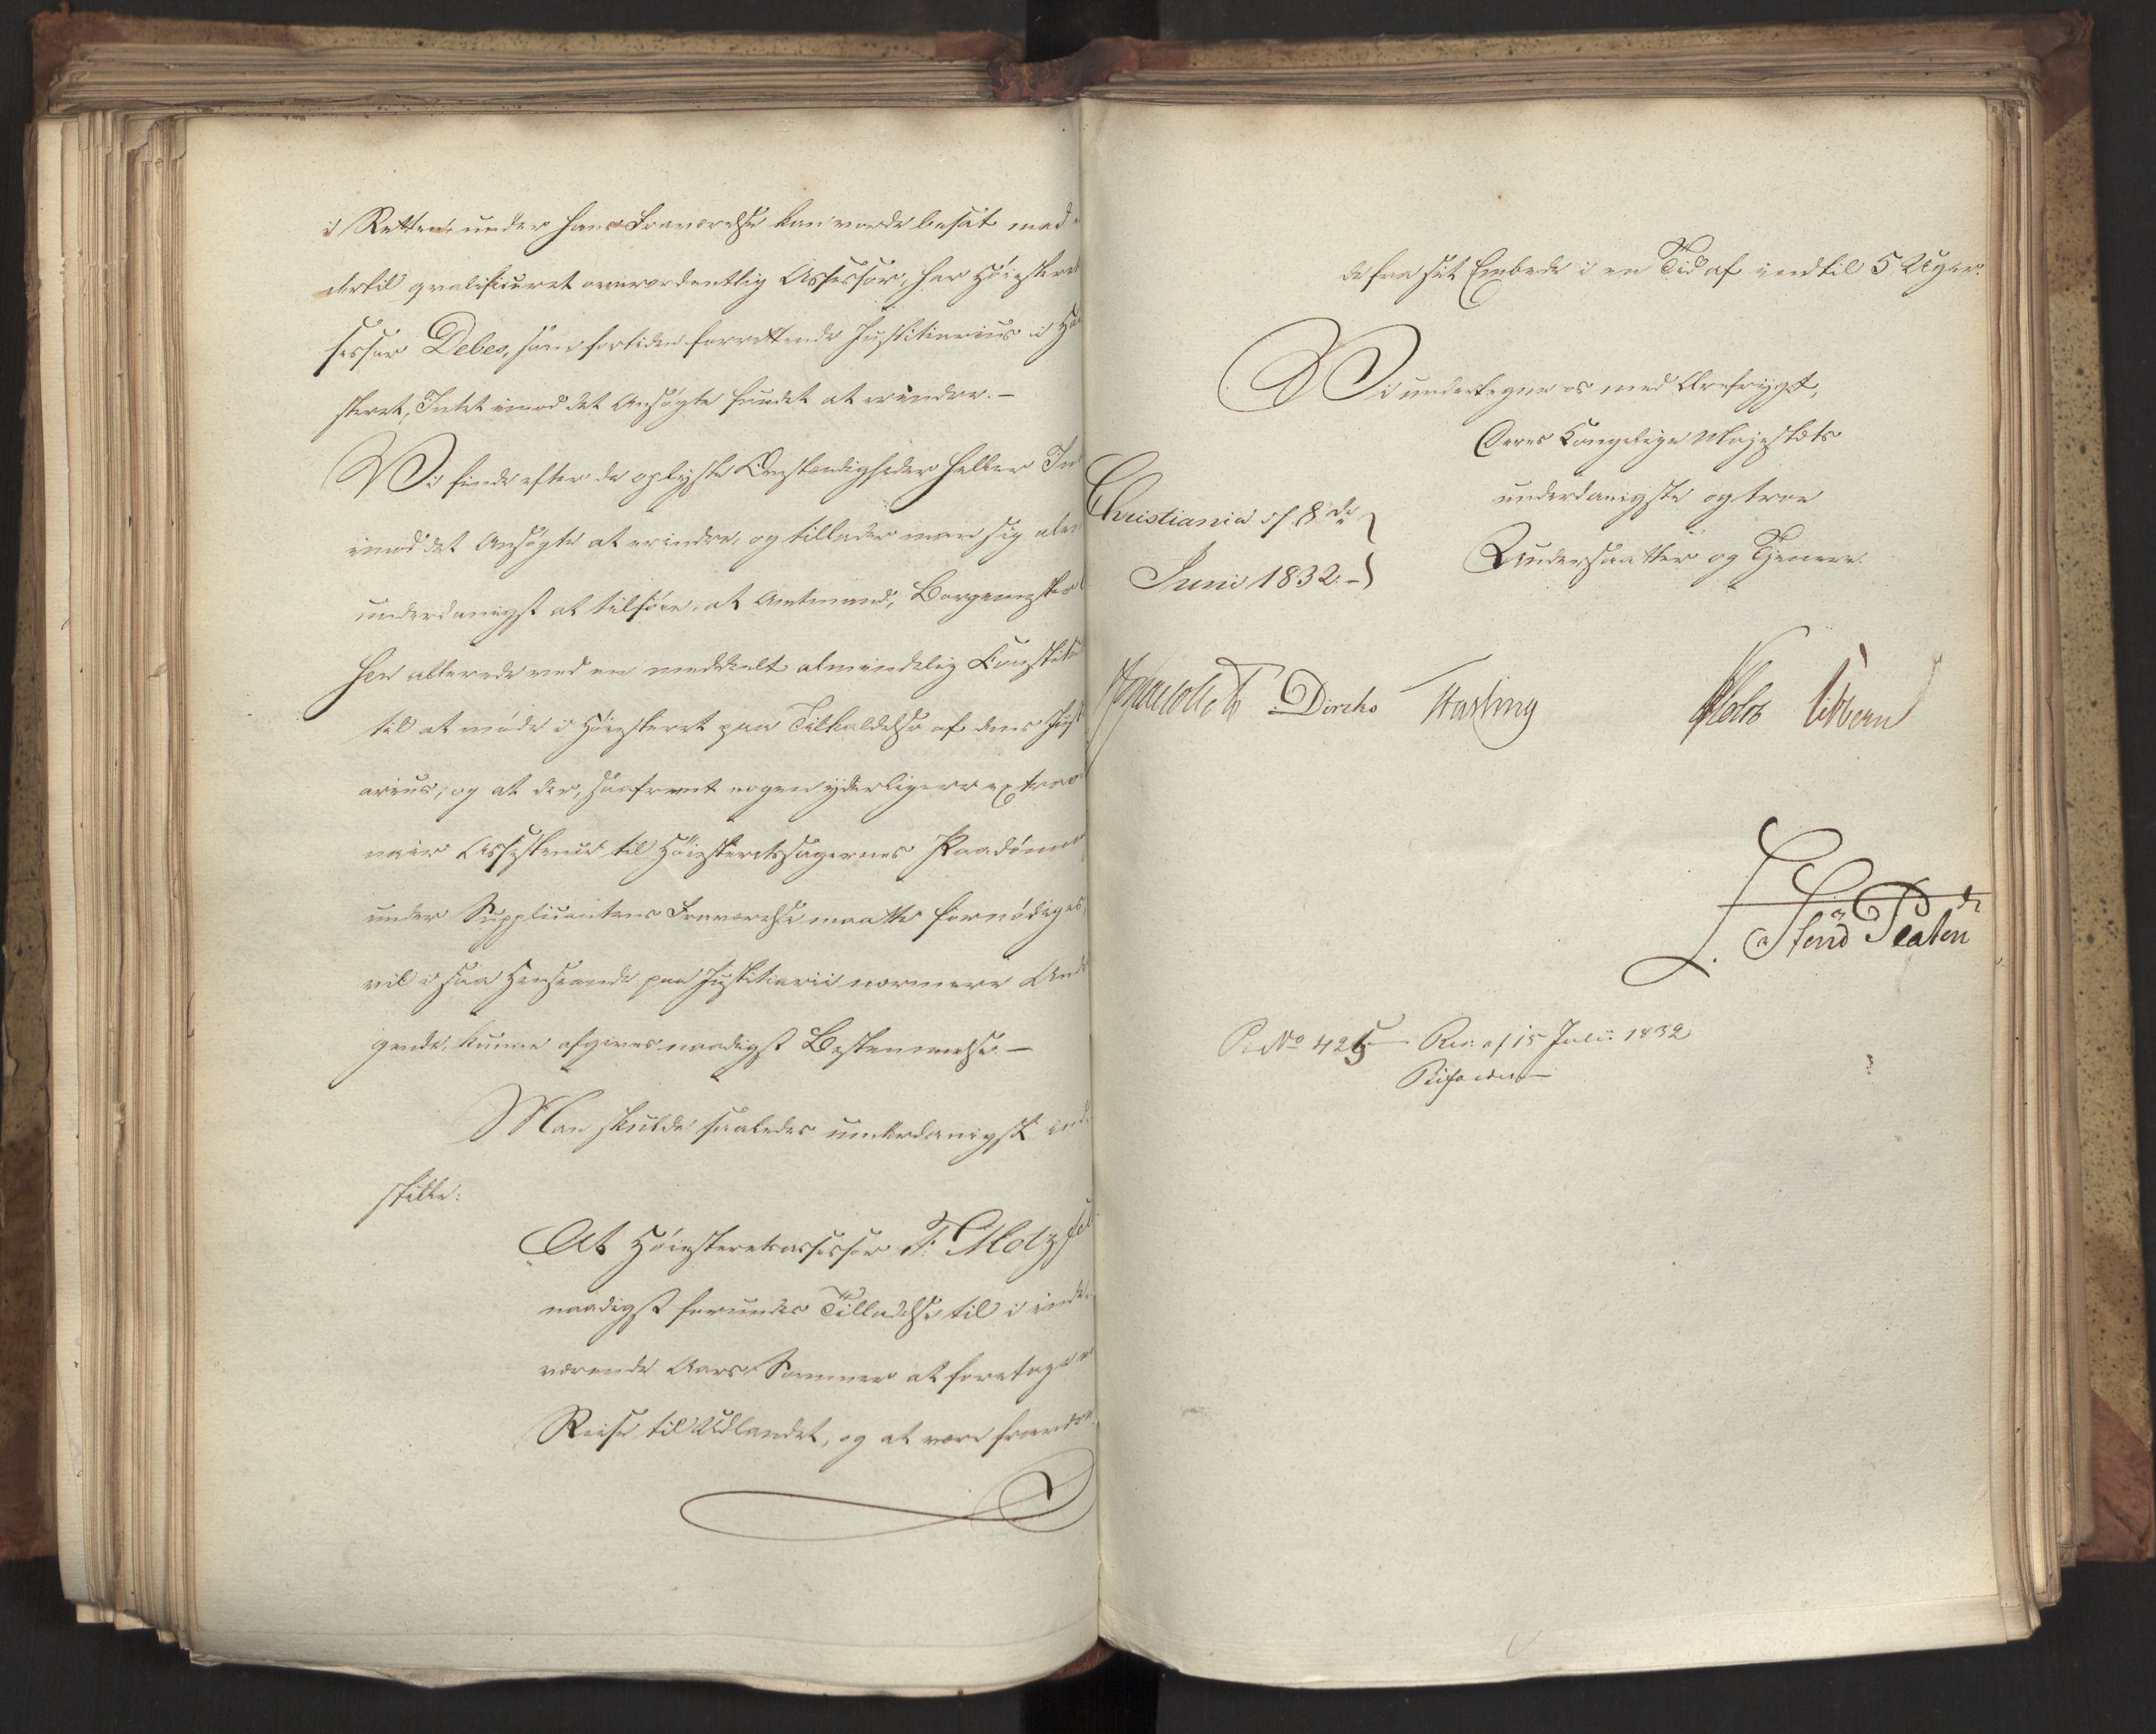 i Retten under hans Fraværelse kan vorde besat med
dertil qvalificeret overordentlig Assessor, har Høiesteret
sessor Debes, som fortiden forrettende Justitiarius i Hø
steret, Intet imod det Ansøgte fundet at erindre. –
Vi finde efter de oplyste Omstændigheder heller In
imod det Ansøgte at erindre, og tillader man sig alen
underdanigst at tilføie, at Amtmand, Borgemester
har allerede ved en meddeelt almindelig Constitu
til at møde i Høiesteret paa Tilkaldelse af dens Just
arius, og at der, saafremt nogen yderligere extraor
nair Assistence til Høiesteretssagernes Paadømme
under Supplicantens Fraværelse maatte fornødiges,
vil i saa Henseende paa Justitiarii nærmere And
gende kunne afgives naadigst Bestemmelse. –
Man skulde saaledes underdanigst ind
stille:
At Høiesteretsassessor F. Motzfel
naadigst forundes Tilladelse til i inde
værende Aars Sommer at foretage en
Reise til Udlandet, og at være fravæ
de fra sit Embede i en Tid af indtil 5 Uger.
Vi undertegne os med Ærefrygt,
Deres Kongelige Majestæts
underdanigste og troe
Undersaatter og Tjenere.
Christiania d. 8de
Juni 1832. –
Collett Diriks Fasting Holst Vibern
Löwenskiold Platen
P. No 425 Res. af 15 Julii 1832